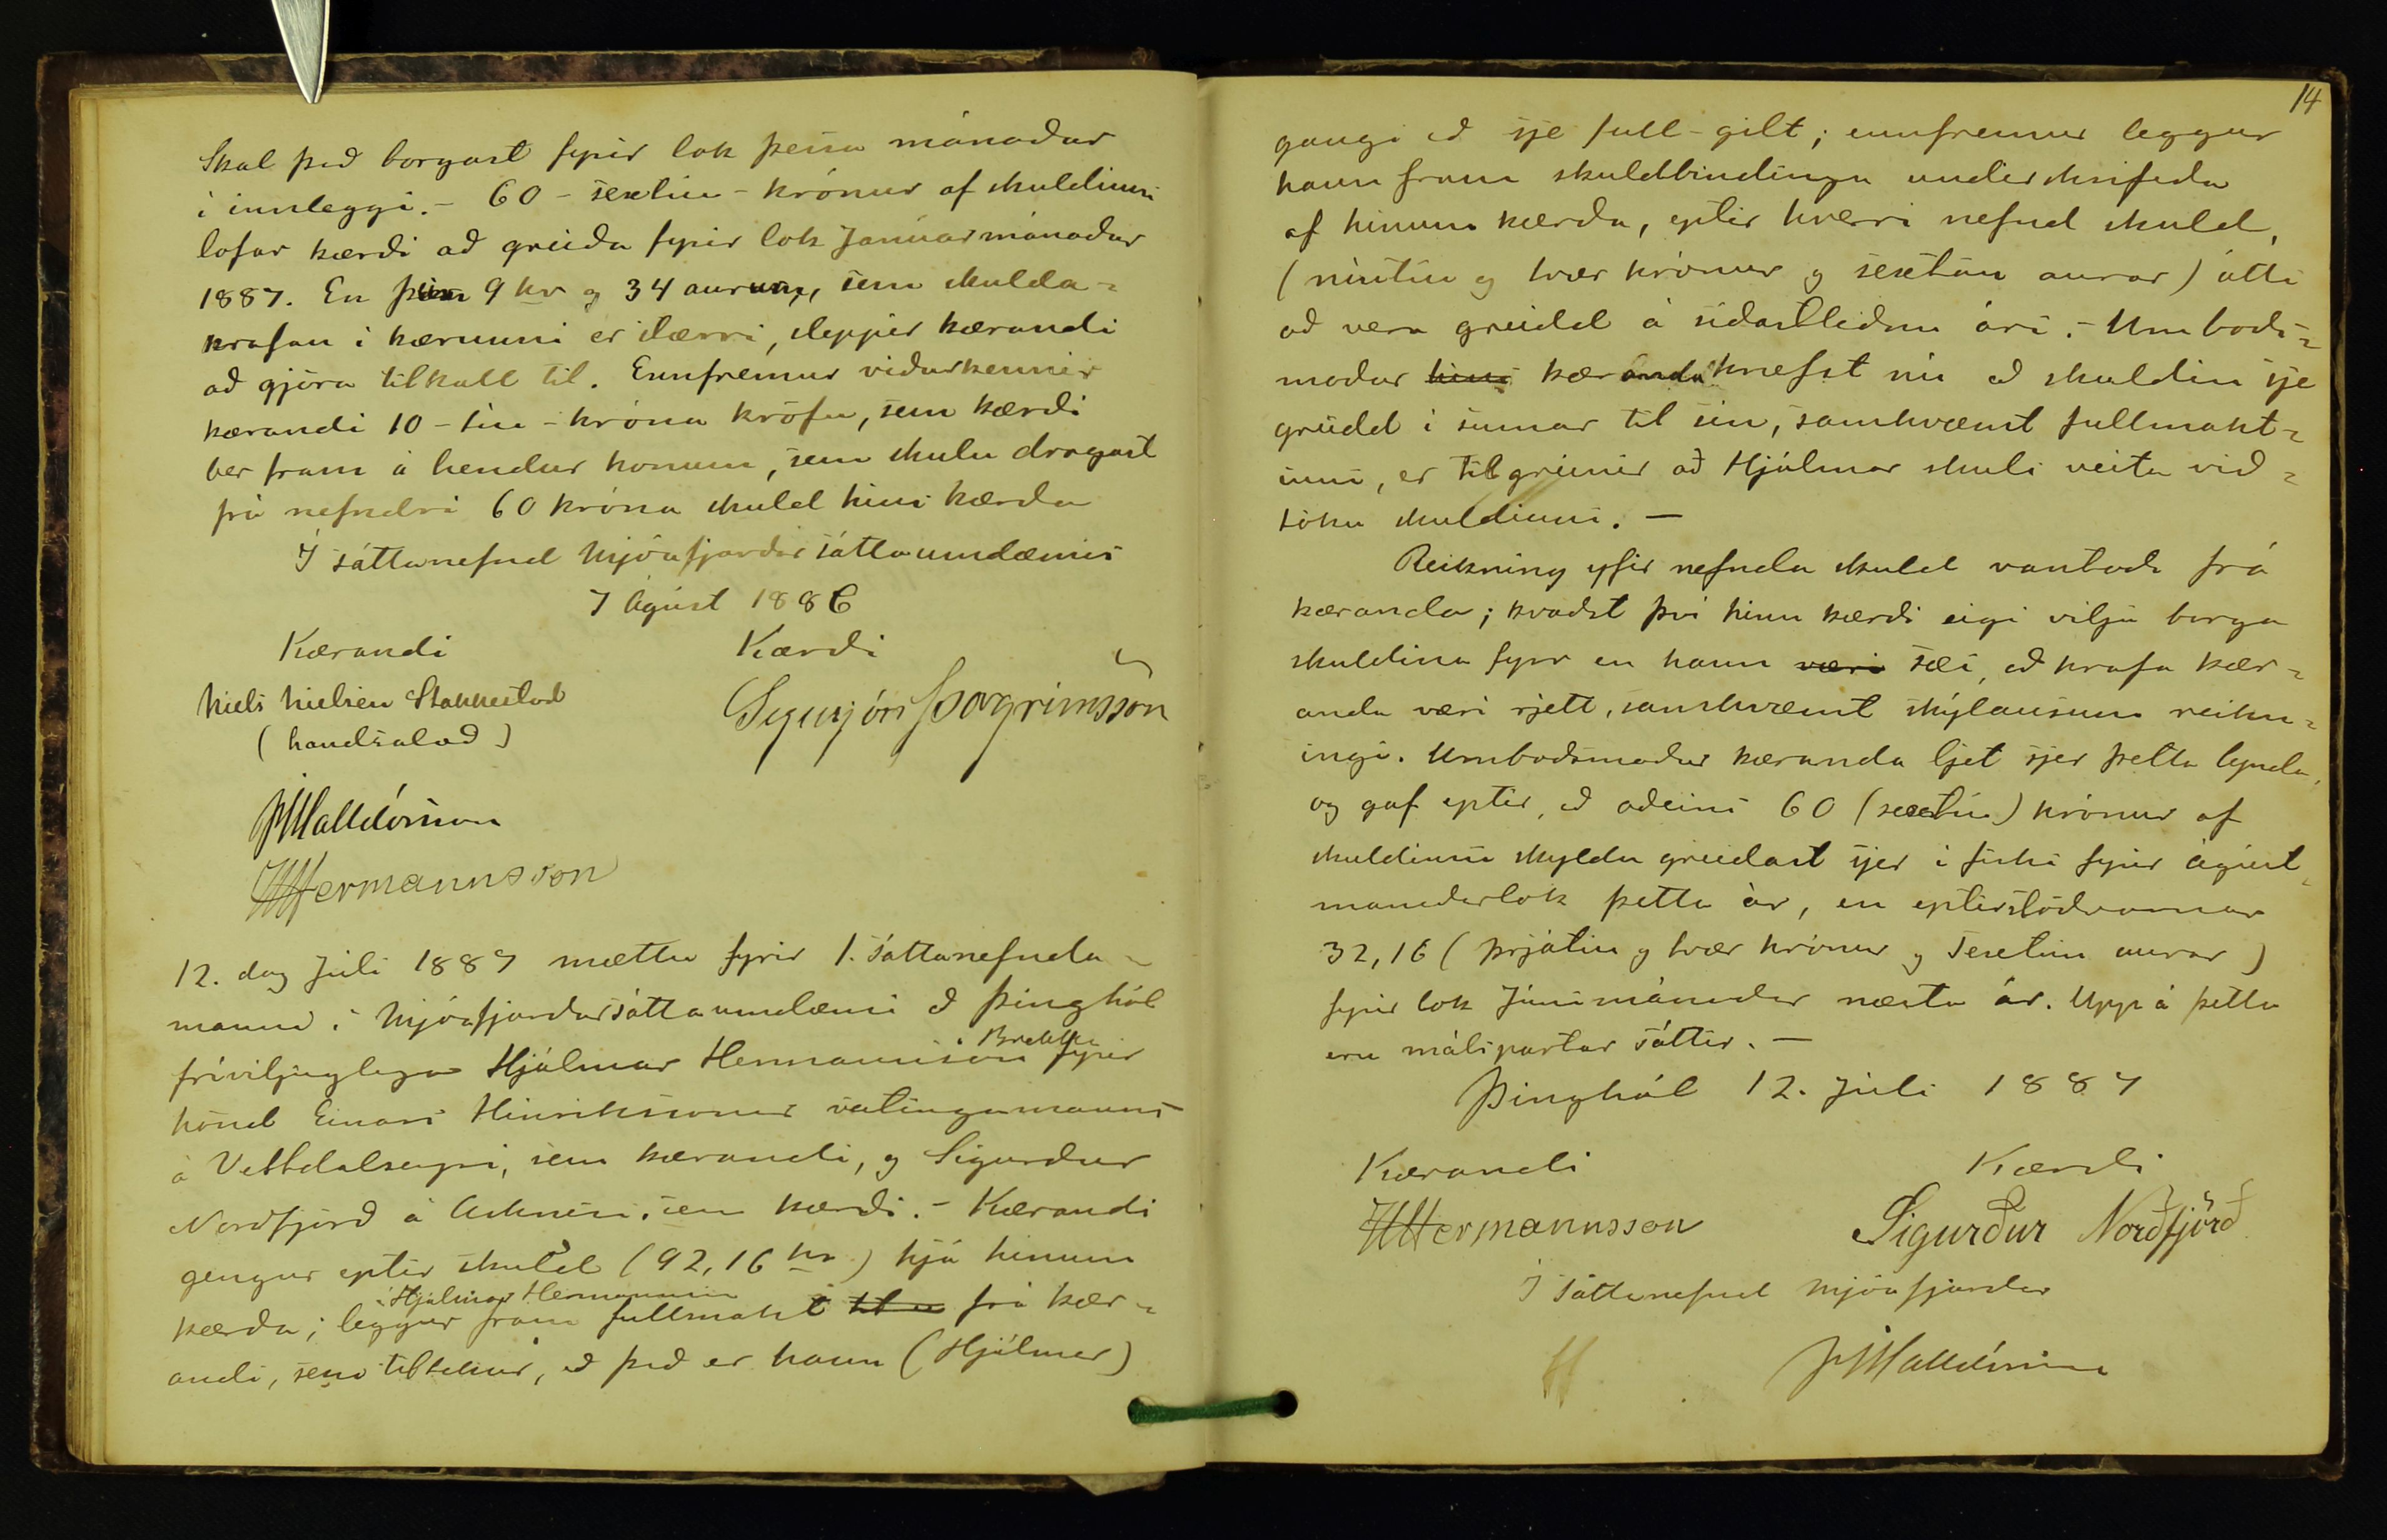 Skal það borgast fyrir lok þessa mánaðar
í innleggi. – 60 – sextíu – krónur af skuldinni
lofar kærði að greiða fyrir lok Janúarmánaðar
1887. En þeim 9 kr og 34 aurum, sem skulda=
krafan í kærunni er stærri, sleppir kærandi
að gjöra tilkall til. Ennfremur viðurkennir
kærandi 10 – tíu – króna kröfu, sem kærði
ber fram á hendur honum, sem skulu dragast
frá nefndri 60 króna skuld hins kærða
Í sáttanefnd Mjóafjarðar sáttaumdæmis
7 Ágúst 1886
Kærandi Kærði
Niels Nielsen Stakkestad Sigurjón Þorgrímsson
(handsalað)
Halldórsson
HHermannsson
12. dag Júlí 1887 mættu fyrir 1. sáttanefnda=
manni í Mjóafjarðarsáttaumdæmi að Þinghól
Brekku
fríviljuglega Hjálmar Hermannsson fyrir
hönd Einars Hinrikssonar veitingamanns
á Vestdalseyri, sem kærandi, og Sigurður
Norðfjörð á Asknesi, sem kærði. – Kærandi
gengur eptir skuld (92,16 kr) hjá hinum
Hjálmar Hermannsson
kærða; leggur fram fullmakt til u frá kær=
andi, sem tiltekur, að það er hann (Hjálmar)
14
gangi að sje full-gilt; ennfremur leggur
hann fram skuldbindingu underskrifaða
af hinum kærða, eptir hverri nefnd skuld,
(níutíu og tvær krónur og sextán aurar) átti
að vera greidd á síðastliðnu ári. – Umboðs=
maður hins kæranda krefst nú að skuldin sje
greidd í sumar til sín, samkvæmt fullmakt=
inni, er tilgreinir að Hjálmar skuli veita við=
töku skuldinni. –
Reikning yfir nefnda skuld vantaði frá
kæranda; kvaðst því hinn kærði eigi vilja borga
skuldina fyrr en hann væri sæi, að krafa kær=
anda væri rjett, samkvæmt skýlausum reikn=
ingi. Umboðsmaður kæranda ljet sjer þetta lynda,
og gaf eptir, að aðeins 60 (sextíu) krónur af
skuldinni skyldu greiðast sjer í fiski fyrir ágúst=
mánaðarlok þetta ár, en eptirstöðvarnar
32,16 (þrjátíu og tvær krónur og sextán aurar)
fyrir lok Júnímánaðar næsta ár. Upp á þetta
eru málspartar sáttir. –
Þinghól 12. Júlí 1887
Kærandi Kærði
HHermannsson Sigurður Norðfjörð
Í sáttanefnd Mjóafjarðar
H Halldórsson